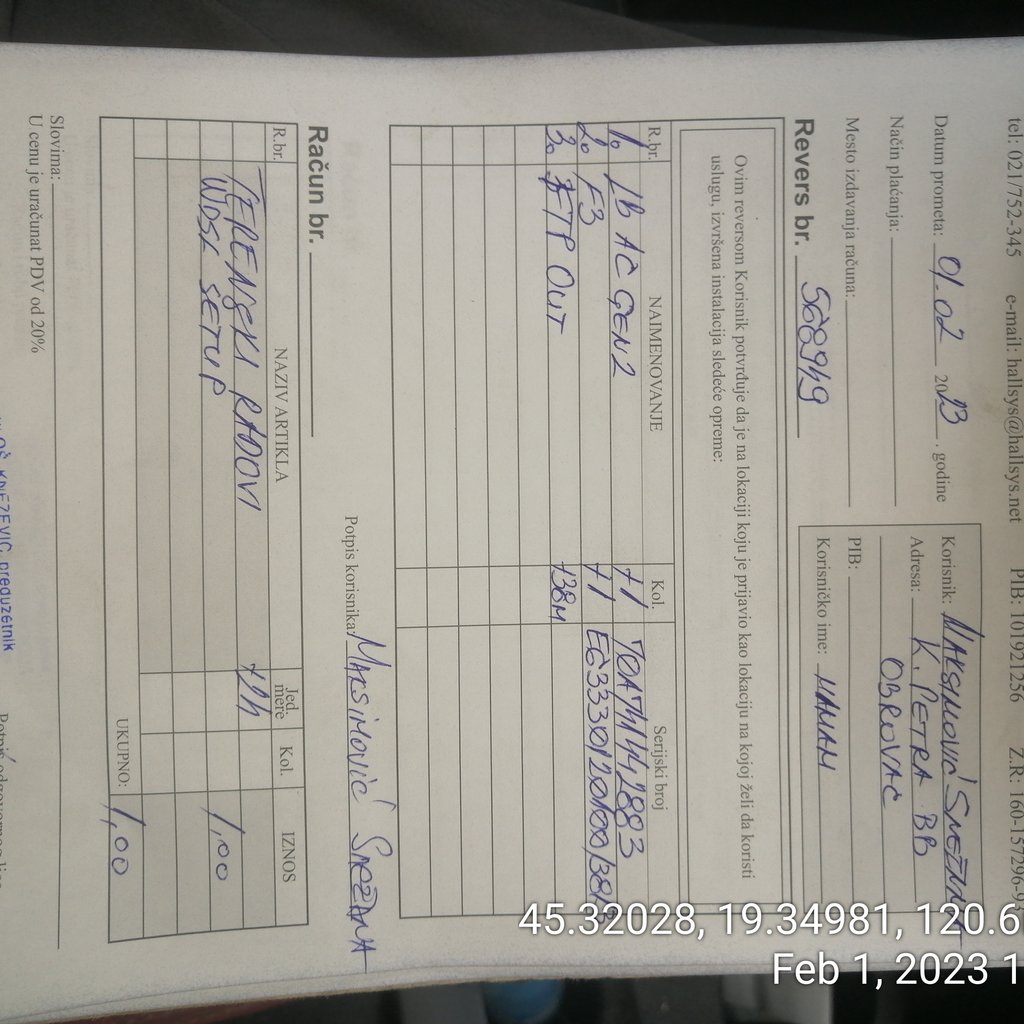 tel: 021/752-345 e-mail: hallsys@hallsys.net PIB: 101921256 Z.R: 160-157296-9
Datum prometa: 01.02 2023. godine
Način plaćanja:
Mesto izdavanja računa:
Korisnik: MAKSIMOVIĆ SNEŽANA
Adresa: K. PETRA BB
OBROVAC
PIB:
Korisničko ime:
Revers br.
Ovim reversom Korisnik potvrđuje da je na lokaciji koju je prijavio kao lokaciju na kojoj želi da koristi
uslugu, izvršena instalacija sledeće opreme:
R.br. NAIMENOVANJE Kol. Serijski broj
1. LB AC GEN2 +1
2. F3 +1
3. FTP OUT +38m
Potpis korisnika: MAKSIMOVIĆ SNEŽANA
Račun br.
R.br. NAZIV ARTIKLA Jed. mere Kol. IZNOS
TERENSKI RADOVI
WDSL SETUP 1,00
UKUPNO: 1,00
Slovima:
U cenu je uračunat PDV od 20%
OŠ KNEŽEVIĆ, preduzetnik
45.32028, 19.34981, 120.6
Feb 1, 2023 1